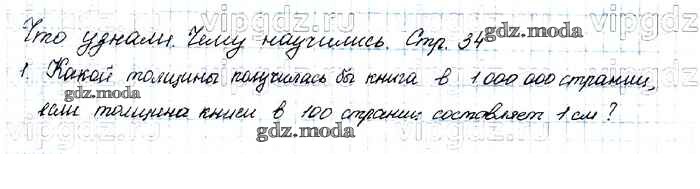 Что узнали. Чему научились. Стр. 34
1. Какой толщины получилась бы книга в 1 000 000 страниц,
если толщина книги в 100 страниц составляет 1 см?
vipgdz.ru
gdz.moda
gdz.moda
gdz.moda
gdz.moda